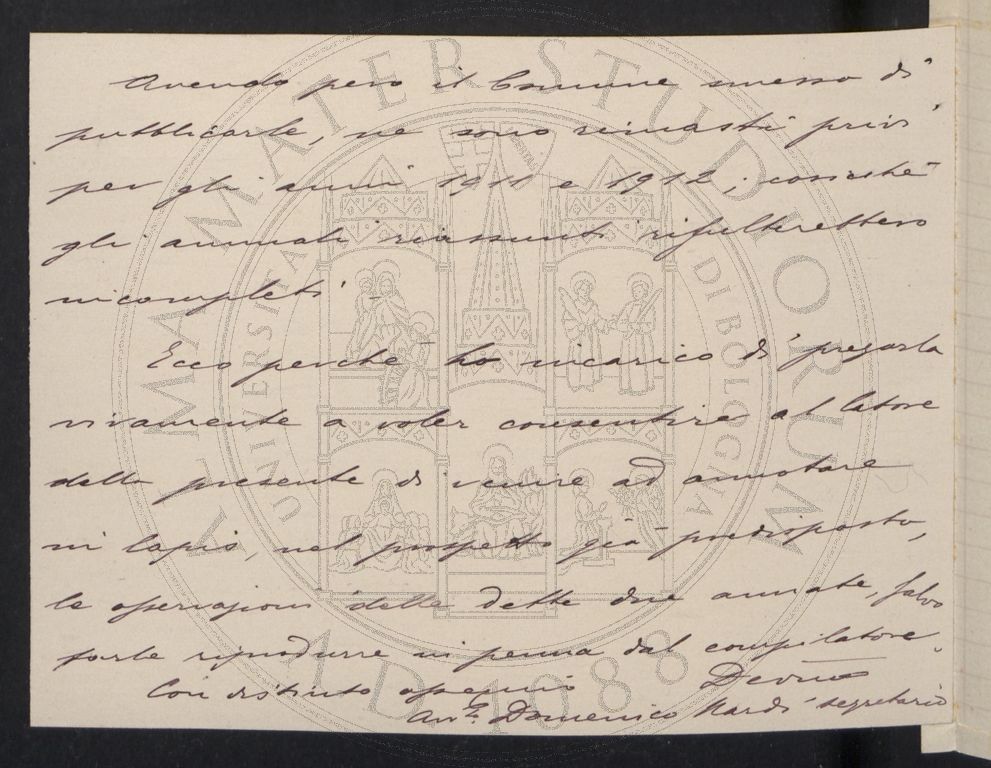 Avendo però il Comune omesso di
pubblicarle, ne sono rimasti privi
per gli anni 1911 e 1912; cosicchè
gli annuali riassunti risulterebbero
incompleti.
Ecco perchè ho incarico di pregarla
vivamente a voler consentire al latore
della presente di venire ad annotare
in lapis, nel prospetto già predisposto,
le operazioni delle dette due annate, salvo
farle riprodurre in penna dal compilatore.
Con distinto ossequio Devmo
Avv. Domenico Nardi segretario
ALMA MATER STUDIORUM
UNIVERSITÀ DI BOLOGNA
A.D. 1088